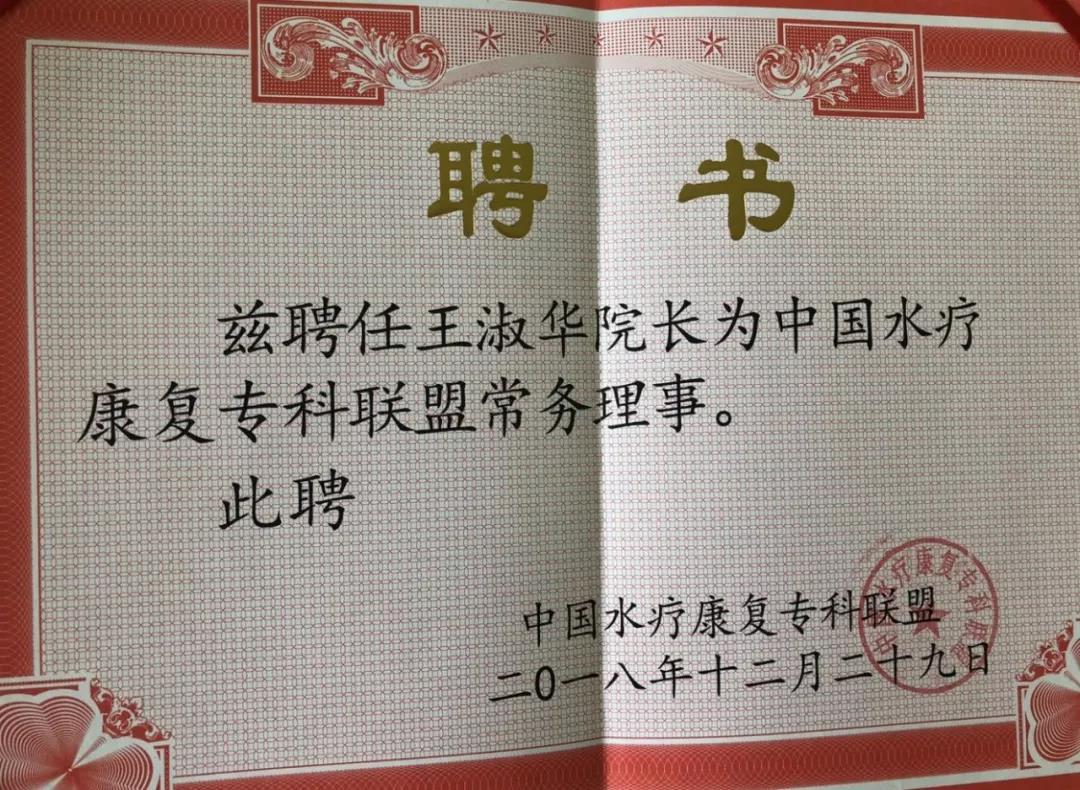 聘书
兹聘任王淑华院长为中国水疗
康复专科联盟常务理事。
此聘
中国水疗康复专科联盟
二0一八年十二月二十九日
中国水疗康复专科联盟